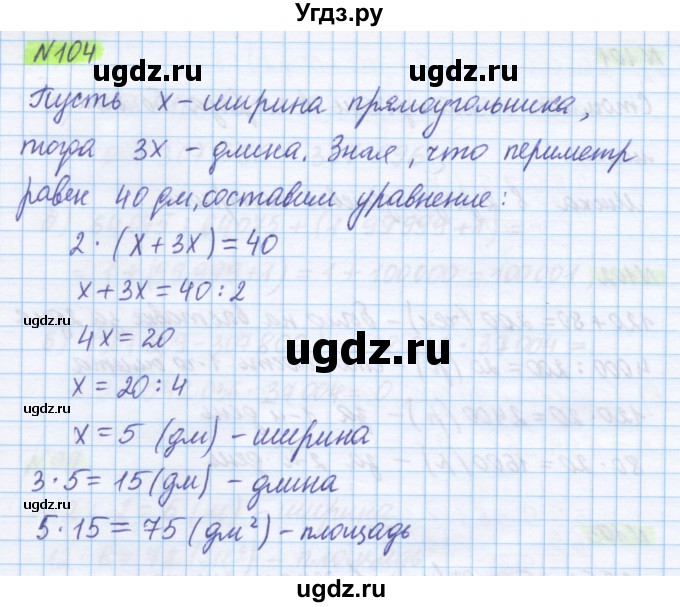 Угдз.ру
№104
ugdz.ru ugdz.ru
Пусть х – ширина прямоугольника,
тогда 3х – длина. Зная, что периметр
равен 40 дм, составим уравнение:
2 · (х + 3х) = 40
х + 3х = 40 : 2
ugdz.ru
4х = 20
ugdz.ru
ugdz.ru
х = 20 : 4
ugdz.ru
х = 5 (дм) – ширина
ugdz.ru ugdz.ru
3 · 5 = 15 (дм) – длина
5 · 15 = 75 (дм²) – площадь
ugdz.ru